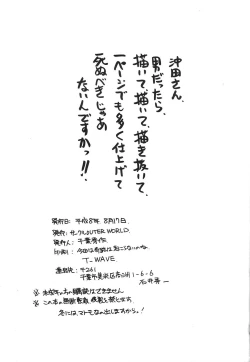 沖田さん、
男だったら、
描いて、描いて、描き抜いて、
一ページでも多く仕上げて
死ぬべきじゃあ
ないんですかっ!!
発行日: 平成8年 8月17日
発行: サークルOUTER WORLD.
発行人: 千葉秀作.
印刷: 今回は奇跡は起こらないのね.
T-WAVE
連絡先: 〒261
千葉市美浜区 1-6-6
石井
※ 未成年の方の購読はできません
※ この本の無断転載、複製を禁じます.
冬には、マトモなの出しますから。!